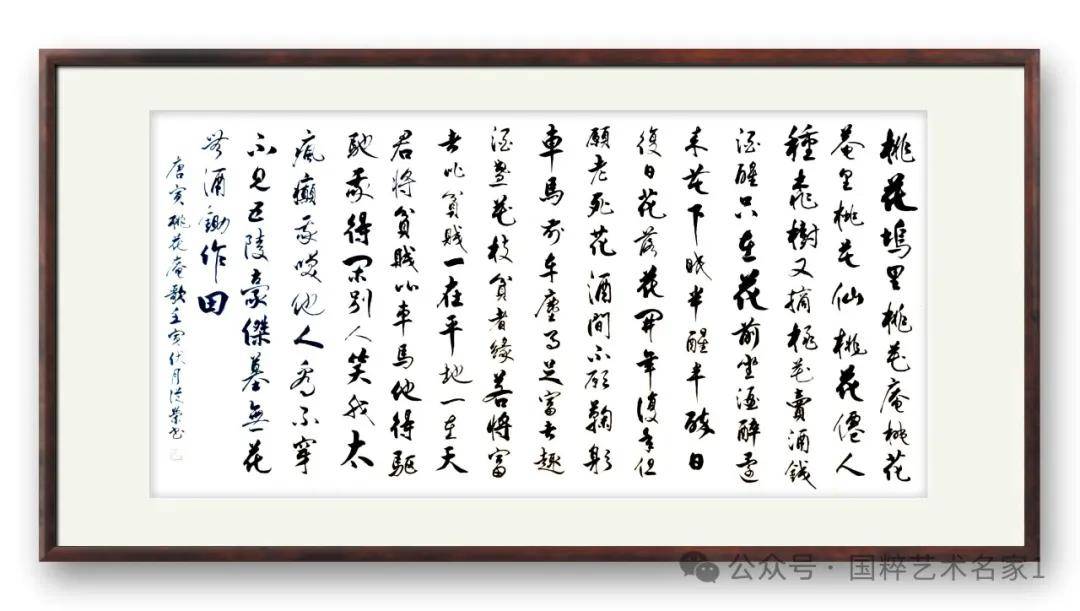 桃花塢里桃花庵桃花
菴里桃花仙桃花僊人
種桃樹又摘桃花賣酒錢
酒醒只在花前坐酒醉還
来花下眠半醒半醉日
復日花落花開年復年但
願老死花酒間不願鞠躬
車馬前车塵馬足富者趣
酒盞花枝貧者緣若將富
者比貧賤一在平地一在天
君將貧賤比車馬他得驅
馳我得閑別人笑我太
瘋癲我笑他人看不穿
不見五陵豪傑墓無花
無酒鋤作田
唐寅桃花庵歌壬寅伏月
公众号·国粹艺术名家1